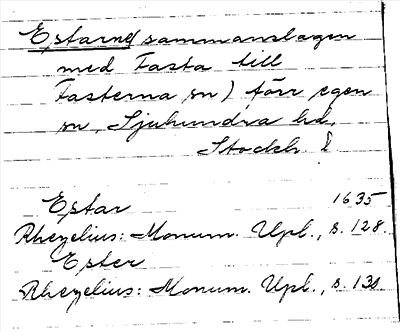 Estarne (sammanslagen
med Fasta till
Fasterna sn) förr egen
sn, Sjuhundra hd,
Stockh l
Estar 1635
Rhezelius: Monum. Upl., s. 128.
Ester
Rhezelius: Monum. Upl., s. 131